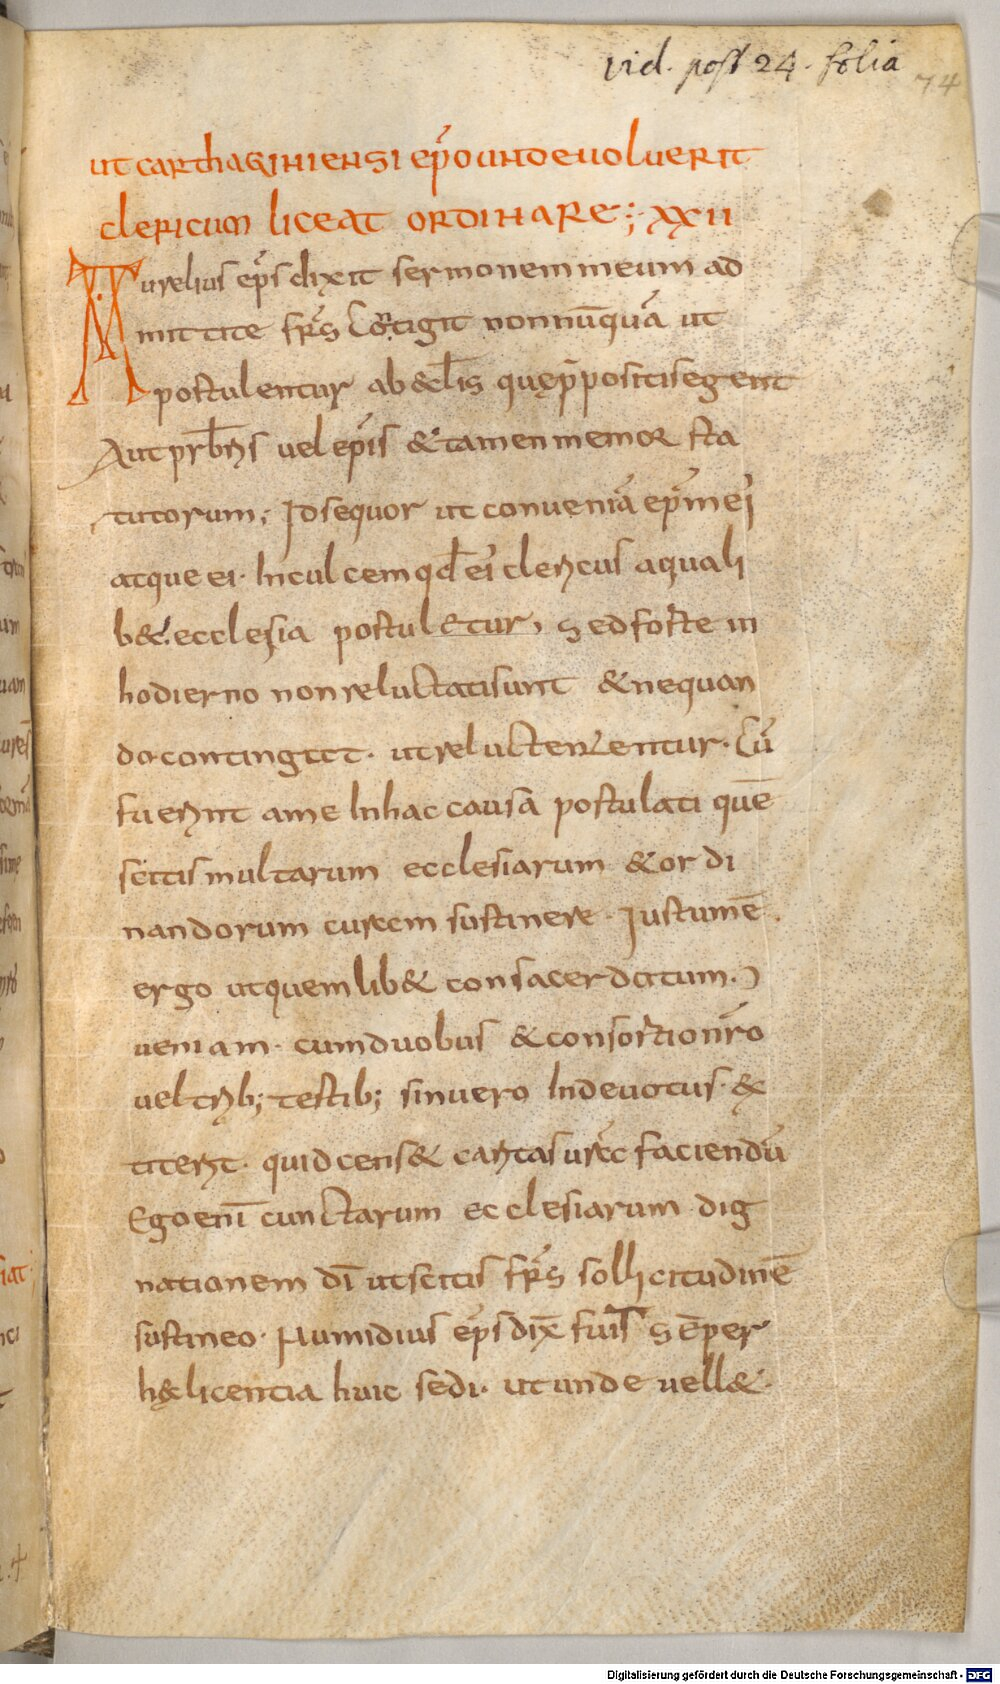 vid. post 24. folia
74
ut carthaginiensi ep̄o unde voluerit
clericum liceat ORDINARE; XXII
Aurelius ep̄s dixit sermonem meum ad
mittite fr̄s Contigit nonnūquā ut
postulentur ab eccl̄iis quę p̄positis egent
Aut pr̄bīs vel ep̄is & tamen memor sta
tutorum; Id sequor ut conveniā ep̄m ei
atque ei. Inculcem qd̄ ei clericus a quali
b& ecclesia postul&ur, sed forte in
hodierno non reluctati sunt & ne quan
do contingat. ut reluctentur. Cū
fuerint a me In hac causa postulati quē
scitis multarum ecclesiarum & ordi
nandorum curam sustinere. Iustum ē
ergo ut quemlib& consacerdotum.
veniam. cum duobus & consortio nr̄o
vel trib; testib; sin vero Indevotus. &
titerit. quid cens& caritas vr̄a faciendū
Ego enī cunctarum ecclesiarum dig
nationem dī ut scitis fr̄s sollicitudinē
sustineo. Numidius ep̄s dix̄ fuit sēper
hęc licentia huic sedi. ut unde vell&.
Digitalisierung gefördert durch die Deutsche Forschungsgemeinschaft - DFG